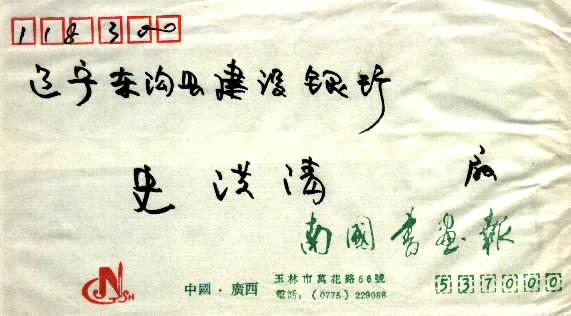 118300
辽宁东沟县建设银行
史洪清 启
南國書畫報
CN JSH
中國·廣西
玉林市萬花路66號
電話:(0775)229088
537000